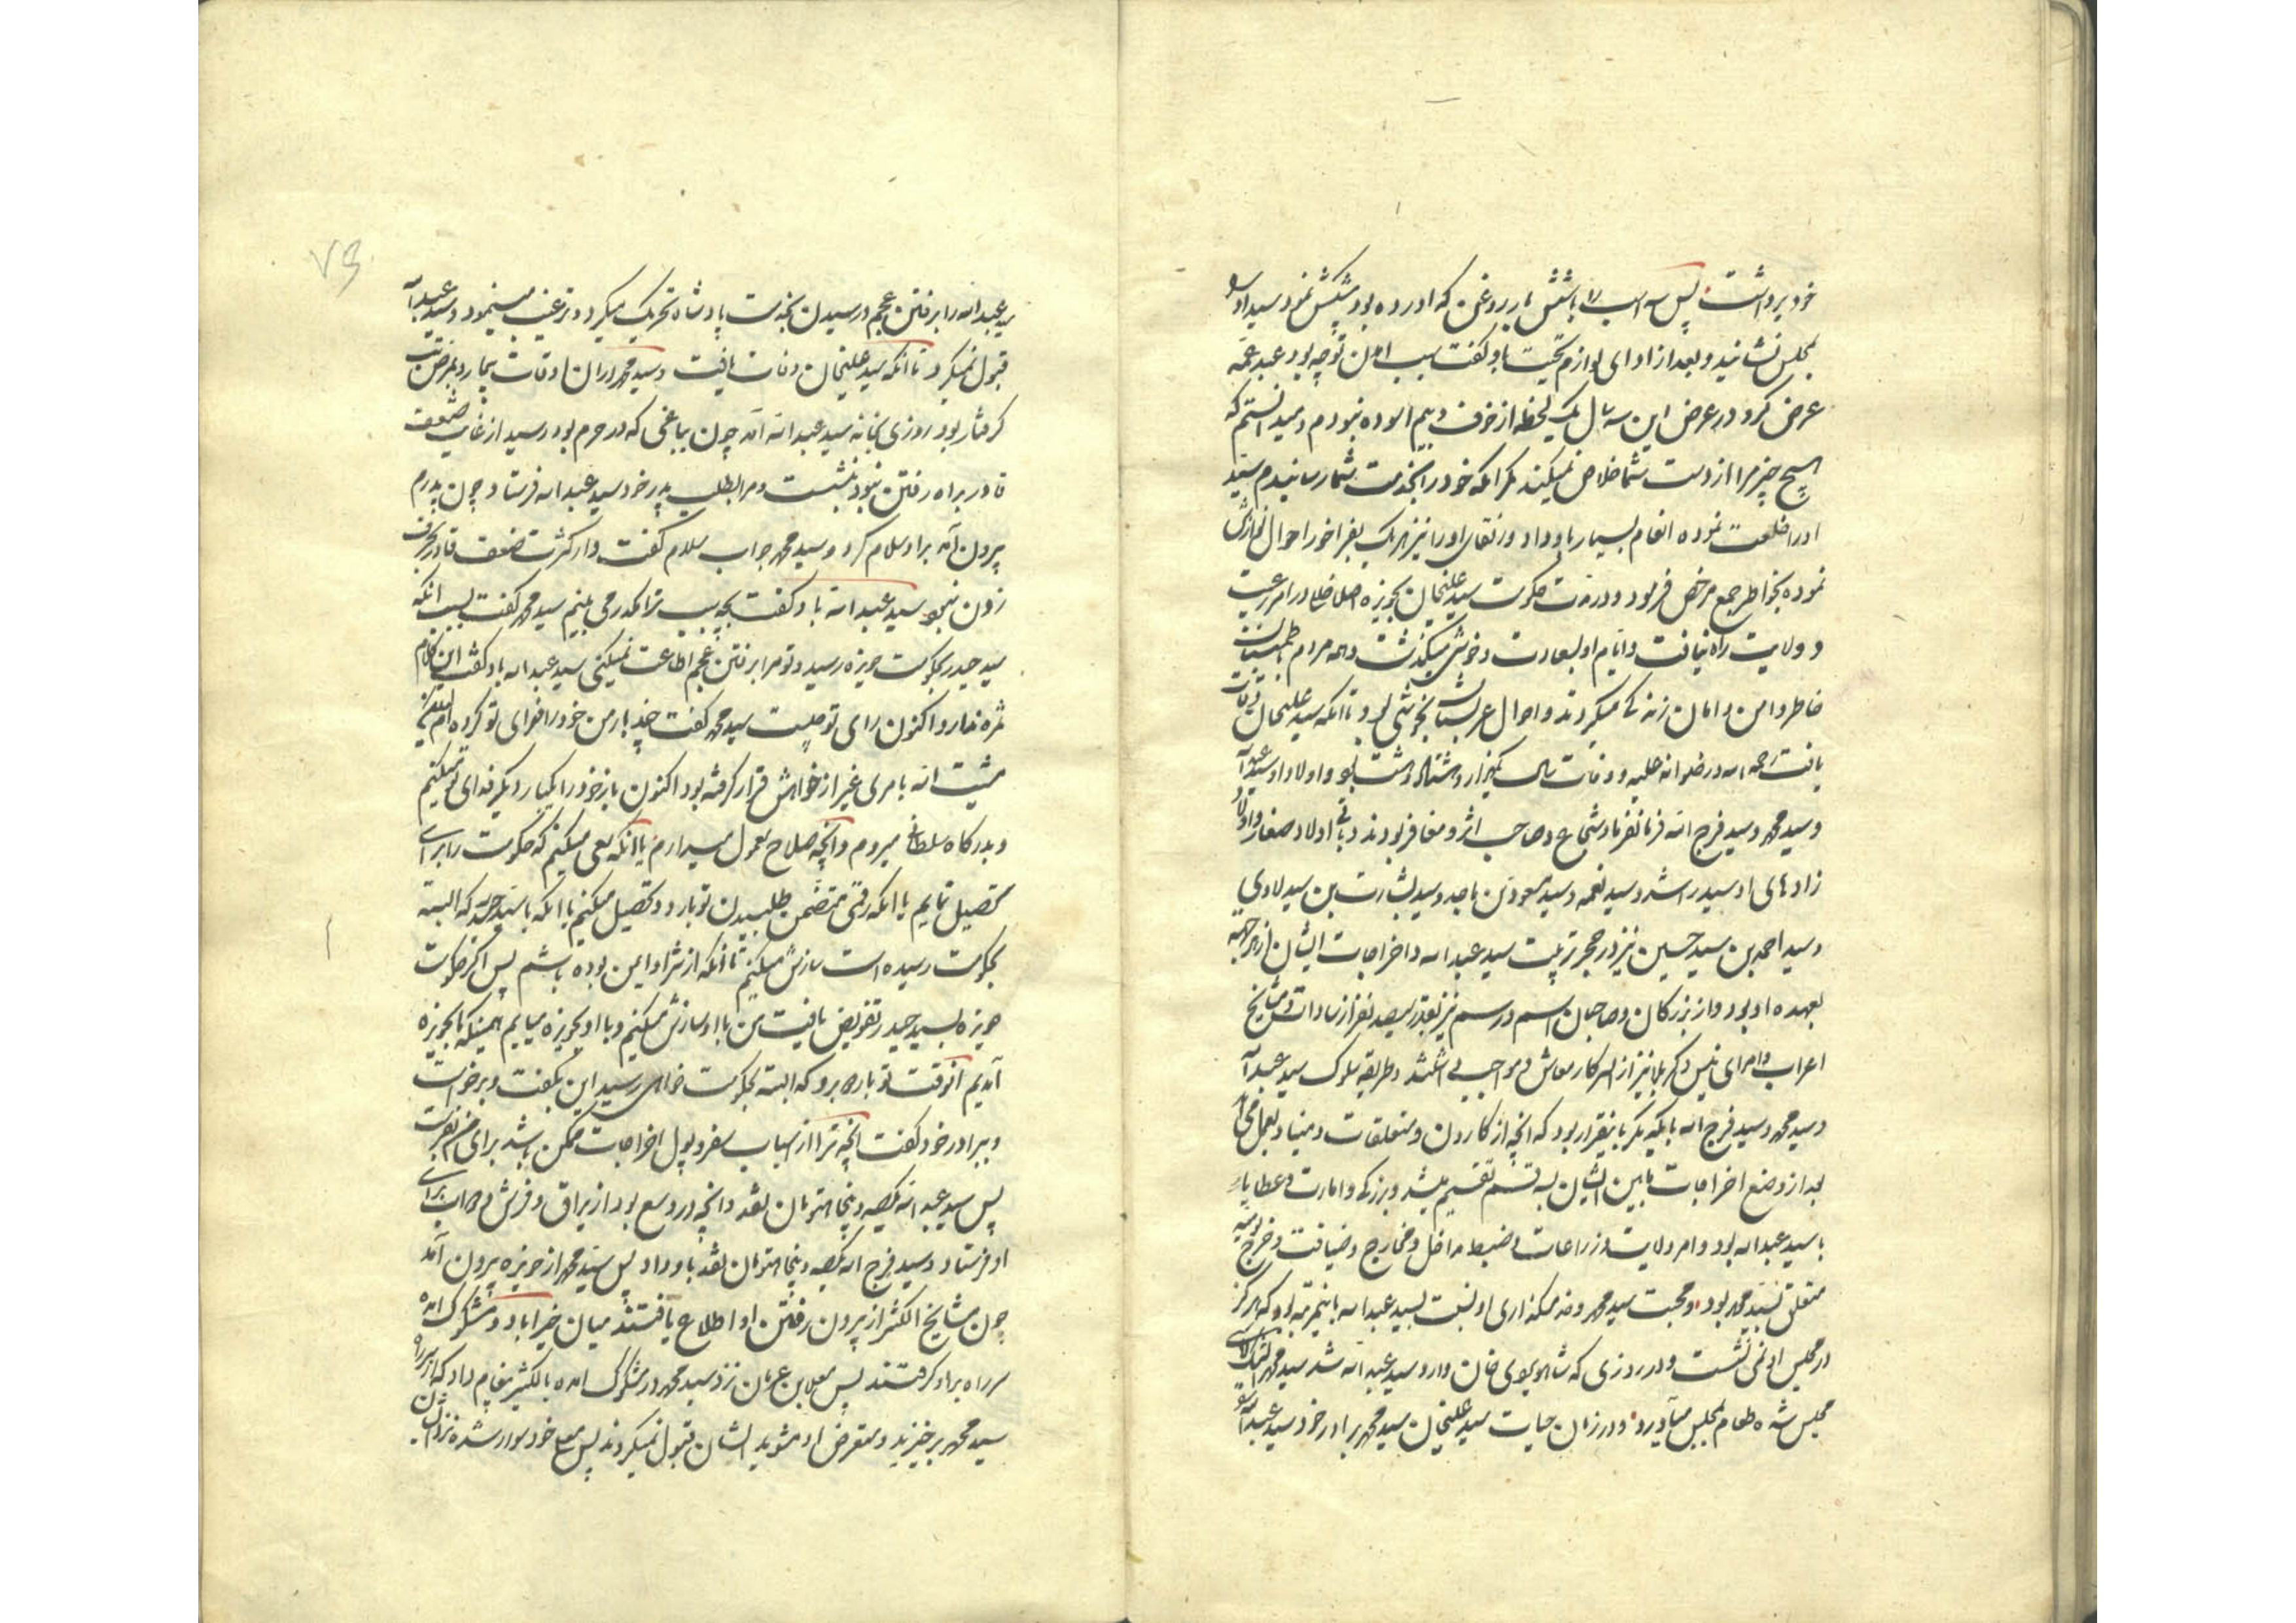 خود برداشت پس اسب را با شش بار روغن که آورده بود پیشکش نمود سید او را
بمجلس نشانید و بعد از ادای لوازم تحیت باو گفت سبب آمدن تو چه بود عبد عمه
عرض کرد در عرض این سه سال یک لحظه از خوف و بیم آسوده نبودم و میدانستم که
هیچ چیز مرا از دست شما خلاص نمیکند مگر آنکه خود را بخدمت شما رسانیدم سید
او را خلعت نموده انعام بسیار باو داد و رفقای او را نیز هر یک بفراخور احوال نوازش
نموده بخاطر جمع مرخص فرمود و در مدت حکومت سید علیخان بحویزه اصلا خلل در امر رعیت
و ولایت راه نیافت و ایام او بسعادت و خوشی میگذشت و همه مردم باطمینان
خاطر و امن و امان زندگی میکردند و احوال عربستان بخوشی بود تا آنکه سید علیخان وفات
یافت رحمه الله در رضوانه علیه و وفات سال یکهزار و هشتاد و هشت بود و اولاد او سید عبدالله
و سید محمد و سید فرج الله فرمانفرما و شجاع و صاحب اثر و مفاخر بودند و باقی اولاد صغار و اولاد
زاد های او سید راشد و سید نعمه و سید مسعود بن ماجد و سید بشارت بن سید لاوی
و سید احمد بن سید حسین نیز در حجر تربیت سید عبدالله و اخراجات ایشان از هر جهت
بعهده او بود و از بزرگان و صاحبان اسم و رسم نیز بقدر سیصد نفر از سادات و مشایخ
اعراب و امرای نیس و کربلا نیز از سرکار معاش و مواجب داشتند و طریقه سلوک سید عبدالله
و سید محمد و سید فرج الله با یکدیگر باینقرار بود که آنچه از کارون و متعلقات و میناو بعمل می‌آمد
بعد از وضع اخراجات مابین ایشان بسه قسم تقسیم میشد و بزرگی و امارت و عطایا
با سید عبدالله بود و امر ولایت و زراعات و ضبط مداخل و مخارج و ضیافت و خرج یومیه
متعلق بسید محمد بود و محبت سید محمد و خدمتگذاری او نسبت بسید عبدالله باینمرتبه بود که هرگز
در مجلس او نمی نشست و در روزی که شاهویردی خان وارد سید عبدالله شد سید محمد
مجلس شده طعام بمجلس میآورد و در زمان حیات سید علیخان سید محمد برادر خود سید عبدالله
۷۳
سید عبدالله را برفتن عجم و رسیدن بخدمت پادشاه تحریک میکرد و ترغیب مینمود و سید عبدالله
قبول نمیکرد تا آنکه سید علیخان وفات یافت و سید محمد در آن اوقات بیمار و بمرض تب
گرفتار بود روزی بخانه سید عبدالله آمد چون بباغی که در حرم بود رسید از غایت ضعف
قادر براه رفتن نبود بنشست و مرا بطلب پدر خود سید عبدالله فرستاد چون پدرم
بیرون آمد بر او سلام کرد و سید محمد جواب سلام گفت و از کثرت ضعف قادر بحرف
زدن نبود سید عبدالله باو گفت بچه سبب ترا مکدر می بینم سید محمد گفت بسبب آنکه
سید حیدر بحکومت حویزه رسید و تو مرا برفتن عجم اطاعت نمیکنی سید عبدالله باو گفت این کلام
ثمره ندارد اکنون رای تو چیست سید محمد گفت چند بار من خود را فدای تو کرده ام
مشیت الله بامری غیر از خواهش قرار گرفته بود اکنون باز خود را یکبار دیگر فدای تو میکنم
و بدرگاه سلطانی میروم و آنچه صلاح بعمل میآرم یا آنکه سعی میکنم که حکومت را برای
تحصیل نمایم یا آنکه رقمی متضمن طلبیدن تو باردو تحصیل میکنم یا آنکه با سید حیدر که البته
بحکومت رسیده است سازش میکنیم تا آنکه از شر او ایمن بوده باشم پس اگر حکومت
حویزه بسید حیدر تفویض یافت من با او سازش میکنم و با او بحویزه میایم همینکه ما بحویزه
آمدیم آنوقت تو باردو برو که البته بحکومت خواهی رسید این بگفت و برخواست
و ببرادر خود گفت آنچه ترا از اسباب سفر و پول اخراجات ممکن باشد برای من بفرست
پس سید عبدالله یکصد و پنجاه تومان نقد و آنچه در وسع بود از یراق و فرش و دواب برای
او فرستاد و سید فرج الله یکصد و پنجاه تومان نقد باو داد پس سید محمد از حویزه بیرون آمد
چون مشایخ الکثیر از بیرون رفتن او اطلاع یافتند میان خیراباد و مشکوک آمده
سر راه بر او گرفتند پس معلا بن عریان نزد سید محمد در مشکوک آمده بالکثیر پیغام داد که از سر راه
سید محمد برخیزید و متعرض او مشوید ایشان قبول نمیکردند پس معلا خود سوار شده نزد ایشان